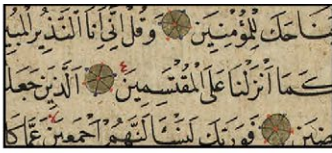 جَنَاحَكَ لِلْمُؤْمِنِينَ وَقُلْ إِنِّي أَنَا النَّذِيرُ الْمُبِينُ
كَمَا أَنْزَلْنَا عَلَى الْمُقْتَسِمِينَ الَّذِينَ جَعَلُوا
عِضِينَ فَوَرَبِّكَ لَنَسْأَلَنَّهُمْ أَجْمَعِينَ عَمَّا كَا